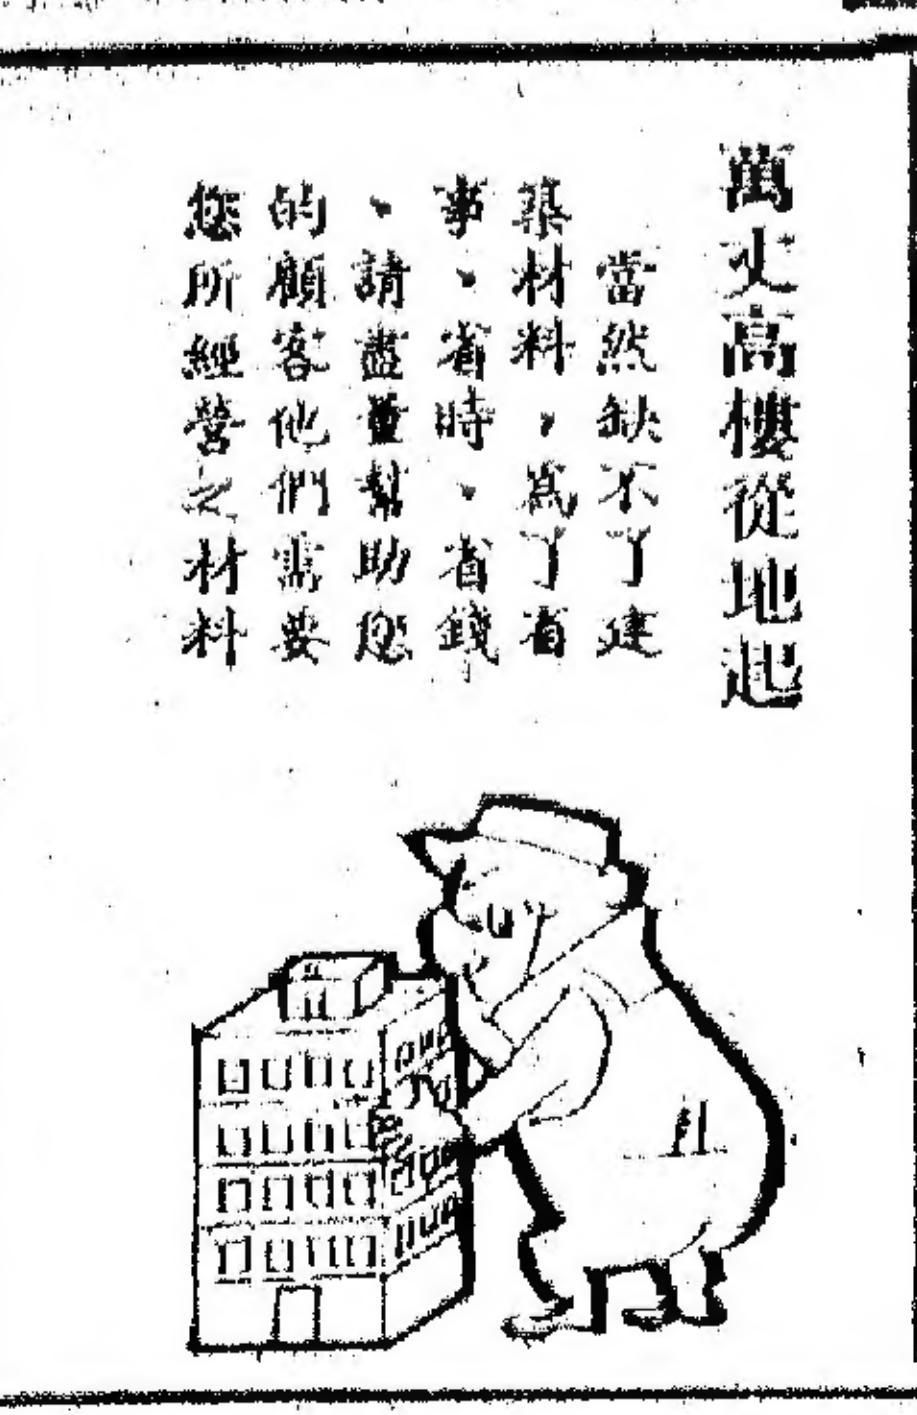 萬丈高樓從地起
當然缺不了建
築材料，爲了省
事、省時、省錢
、請盡量幫助您
的顧客他們需要
您所經營之材料